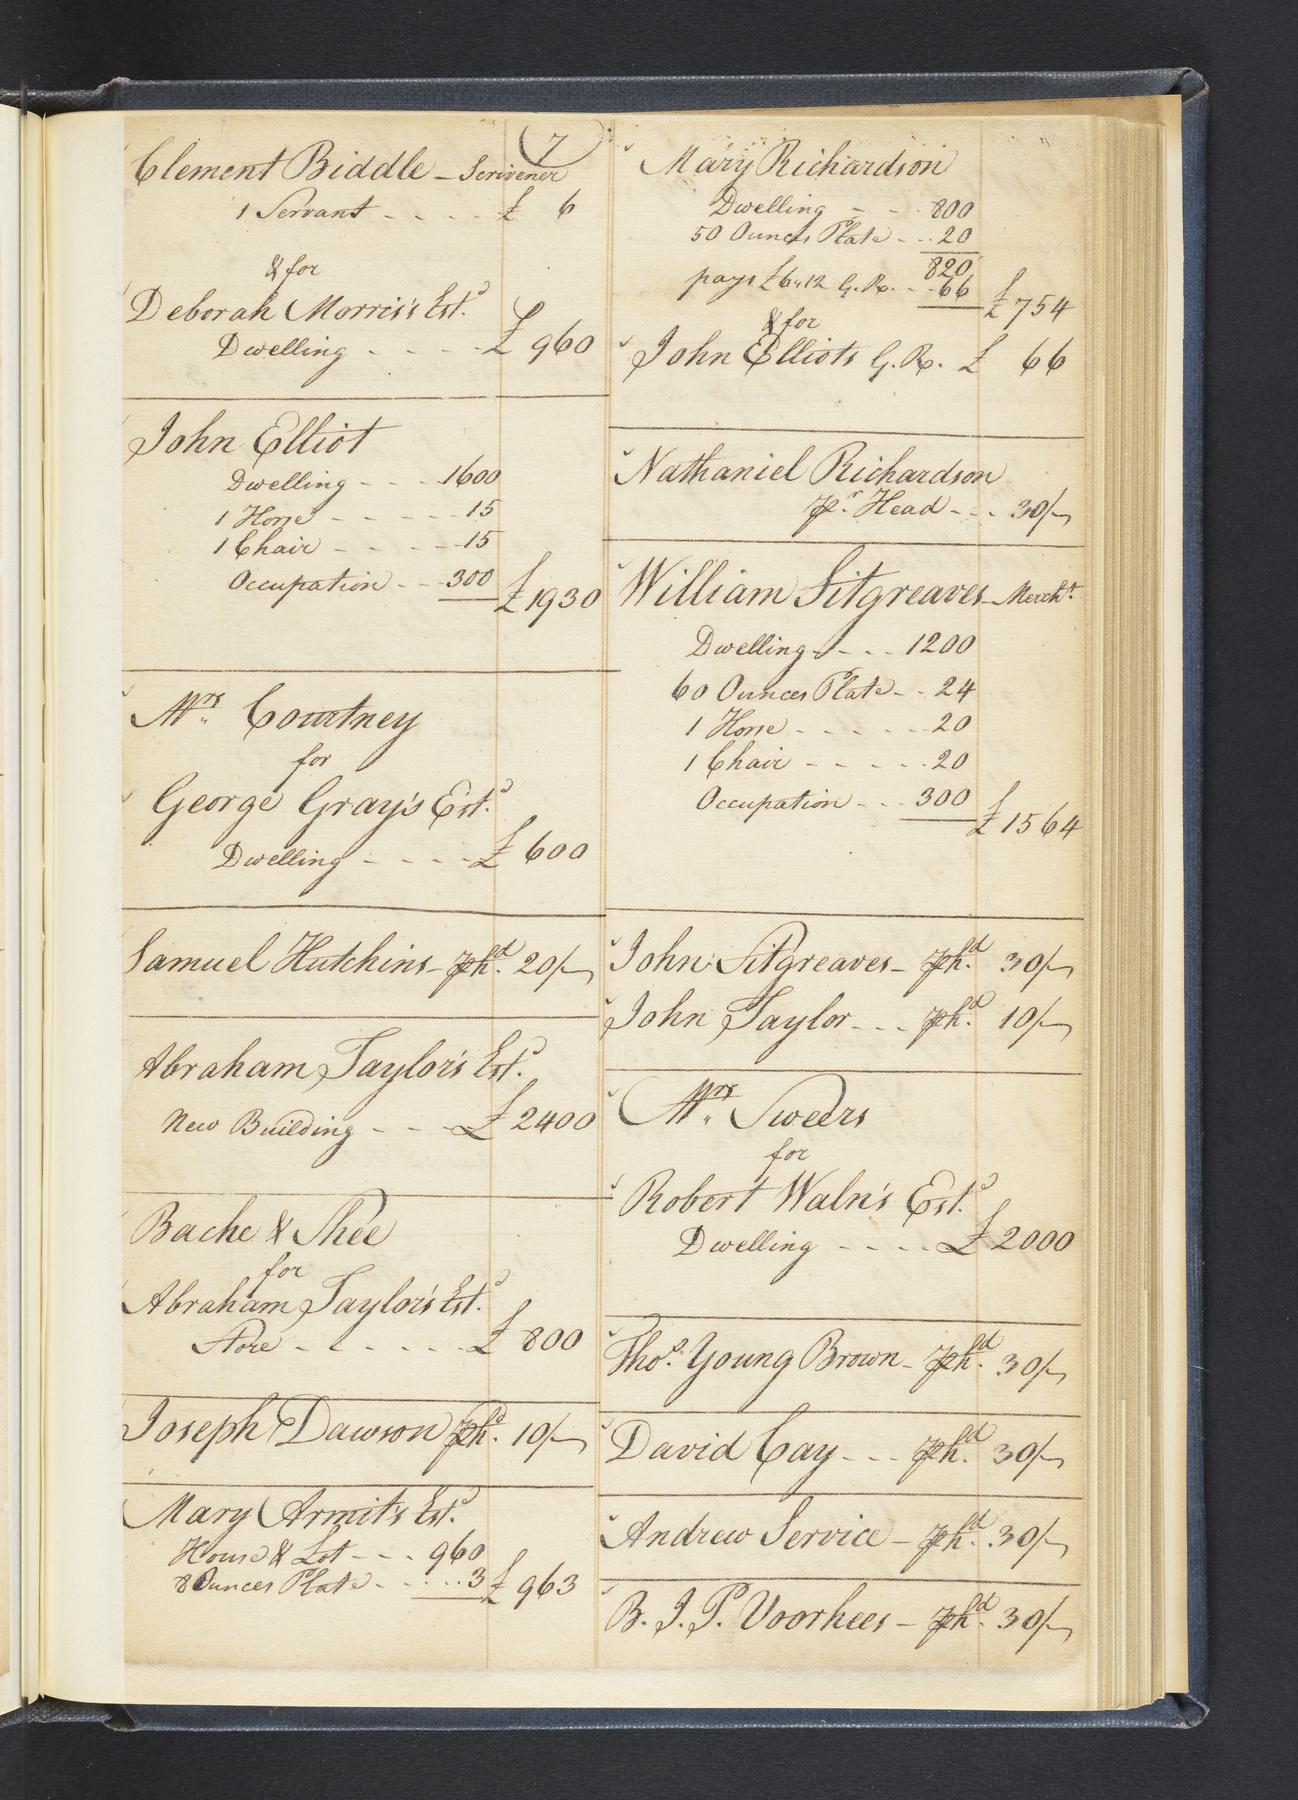 7
Clement Biddle - Scrivener
1 Servant - - - - £ 6
& for
Deborah Morris's Estd.
Dwelling - - - - £ 960
John Elliot
Dwelling - - - 1600
1 Horse - - - - - 15
1 Chair - - - - - 15
Occupation - - 300 £1930
Mrs. Courtney
for
George Gray's Estd.
Dwelling - - - - £ 600
Samuel Hutchins - ⅌ hd. 20/-
Abraham Taylor's Estd.
New Building - - - £ 2400
Bache & Shee
for
Abraham Taylor's Estd.
Store - - - - - - £ 800
Joseph Dawson ⅌ hd. 10/-
Mary Armit's Estd.
House & Lot - - - 960
8 Ounces Plate - - - - 3 £ 963
Mary Richardson
Dwelling - - - 800
50 Ounces Plate - - - 20
820
pays £6"12 G. R. - - 66 £ 754
& for
John Elliots G. R. £ 66
Nathaniel Richardson
⅌r. Head - - - 30/-
William Sitgreaves - Mercht.
Dwelling - - - 1200
60 Ounces Plate - - 24
1 Horse - - - - - 20
1 Chair - - - - - 20
Occupation - - - 300 £ 1564
John Sitgreaves - ⅌ hd. 30/-
John Taylor - - - ⅌ hd. 10/-
Mrs. Sweers
for
Robert Waln's Estd.
Dwelling - - - - £ 2000
Thos. Young Brown - ⅌ hd. 30/-
David Cay - - - ⅌ hd. 30/-
Andrew Service - ⅌ hd. 30/-
B. I. P. Voorhees - ⅌ hd. 30/-